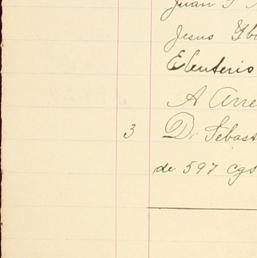 Juan
Jesus Yb
Eleuterio
A Arre
3 D. Sebast
de 597 cgs